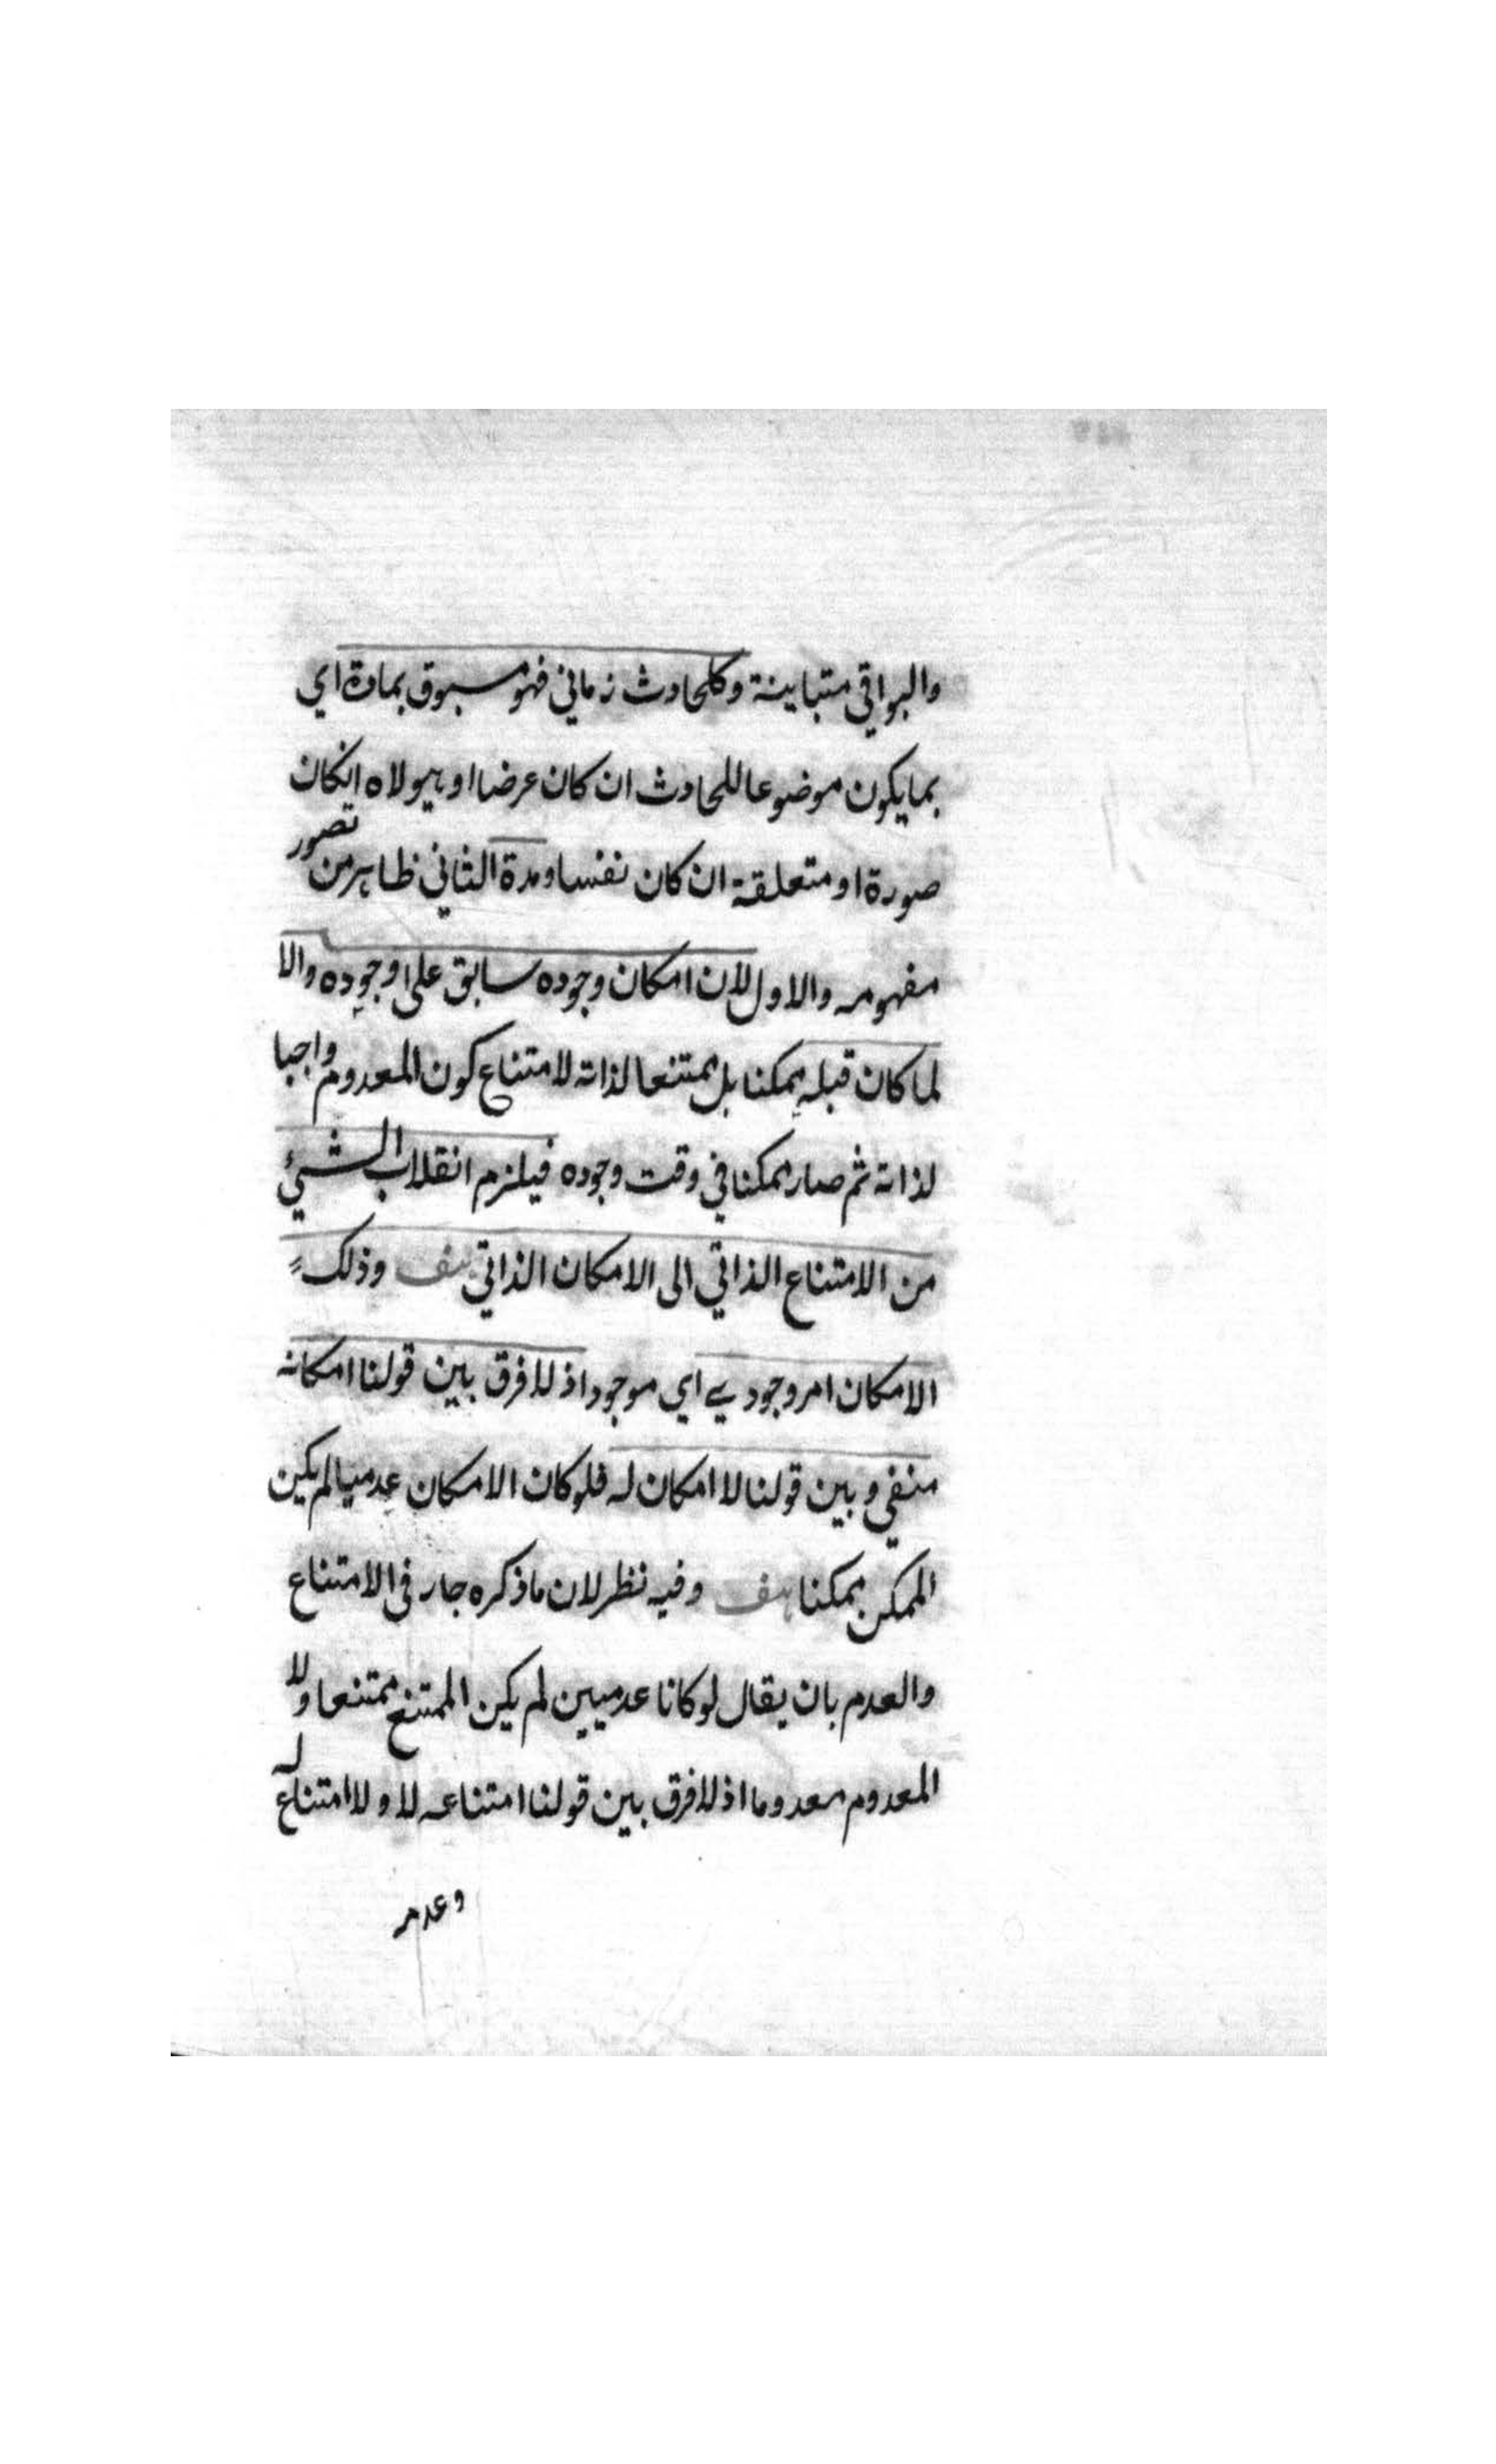 والبواقي متباينة وكلحادث زماني فهو مسبوق بمادة اي
بما يكون موضوعا للحادث ان كان عرضا او هيولاه انكان
صورة او متعلقة ان كان نفسا ومدة الثاني ظاهر من تصور
مفهومه والاول لان امكان وجوده سابق على وجوده والا
لما كان قبله ممكنا بل ممتنعا لذاته لامتناع كون المعدوم واجبا
لذاته ثم صار ممكنا في وقت وجوده فيلزم انقلاب الشيئ
من الامتناع الذاتي الى الامكان الذاتي هف وذلك
الامكان امر وجودي اي موجود اذ لا فرق بين قولنا امكانه
منفي وبين قولنا لا امكان له فلو كان الامكان عدميا لم يكن
الممكن ممكنا هف وفيه نظر لان ما ذكره جار في الامتناع
والعدم بان يقال لو كانا عدميين لم يكن الممتنع ممتنعا ولا
المعدوم معدوما اذ لا فرق بين قولنا امتناعه لا ولا امتناع له
وعدمه